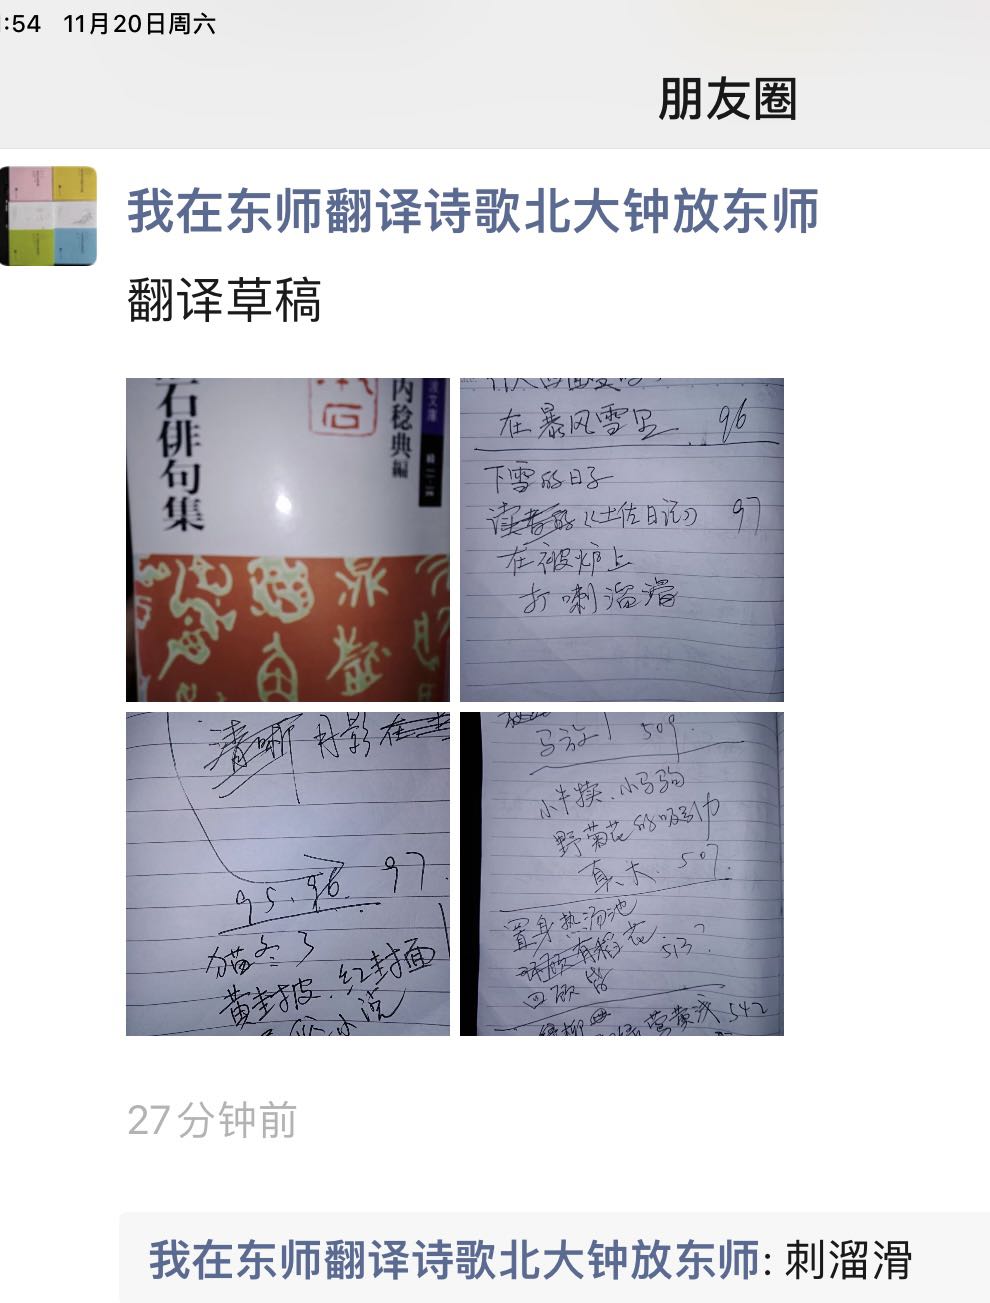 :54 11月20日周六
朋友圈
我在东师翻译诗歌北大钟放东师
翻译草稿
石俳句集
内稔典編
在暴风雪里 96
下雪的日子
《土佐日记》 97
在被炉上
打喇溜滑
清晰 月影在
95.96. 97.
猫冬了
黄封皮.红封面
小说
509.
小牛犊.小马驹
野菊花的吸引力
真大. 507.
置身热汤池
有稻花 513?
四顾皆
542
27分钟前
我在东师翻译诗歌北大钟放东师: 刺溜滑